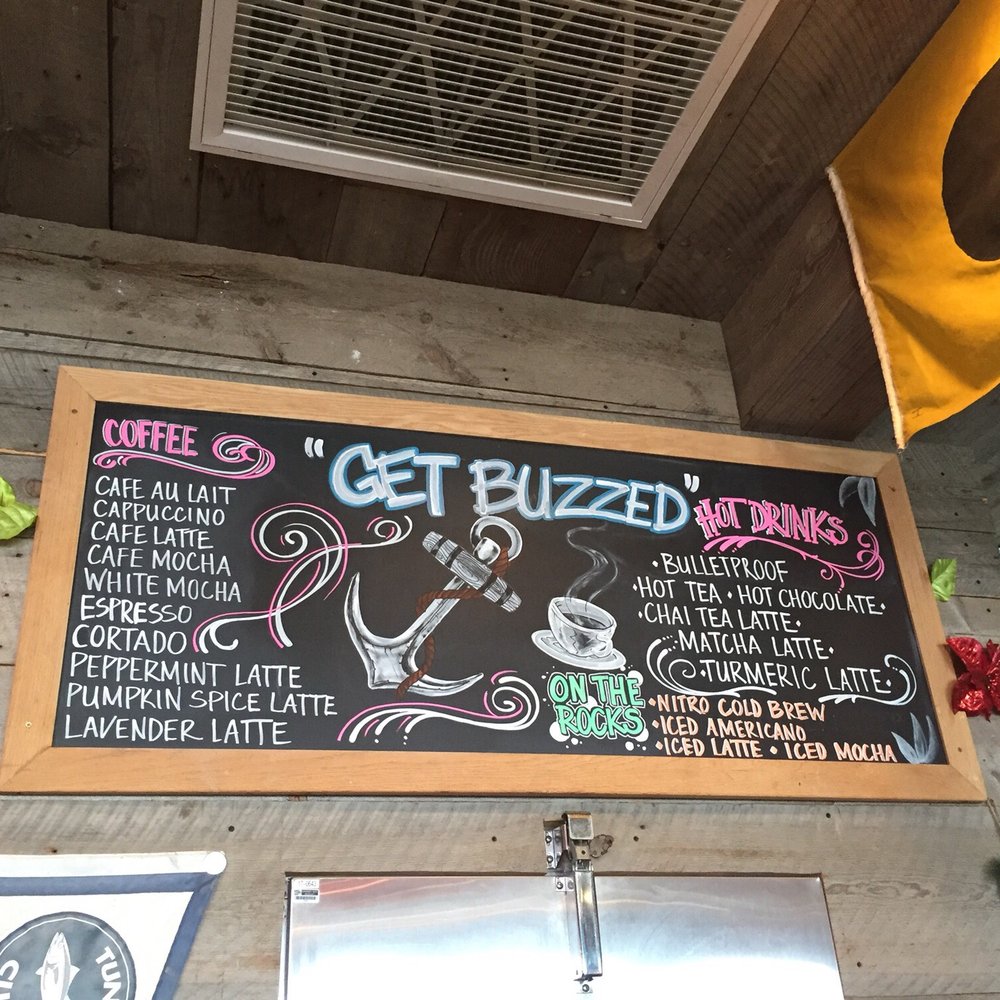 "GET BUZZED"
COFFEE
CAFE AU LAIT
CAPPUCCINO
CAFE LATTE
CAFE MOCHA
WHITE MOCHA
ESPRESSO
CORTADO
PEPPERMINT LATTE
PUMPKIN SPICE LATTE
LAVENDER LATTE
HOT DRINKS
• BULLETPROOF
• HOT TEA • HOT CHOCOLATE •
• CHAI TEA LATTE •
• MATCHA LATTE •
• TURMERIC LATTE •
ON THE
ROCKS
• NITRO COLD BREW
• ICED AMERICANO
• ICED LATTE • ICED MOCHA